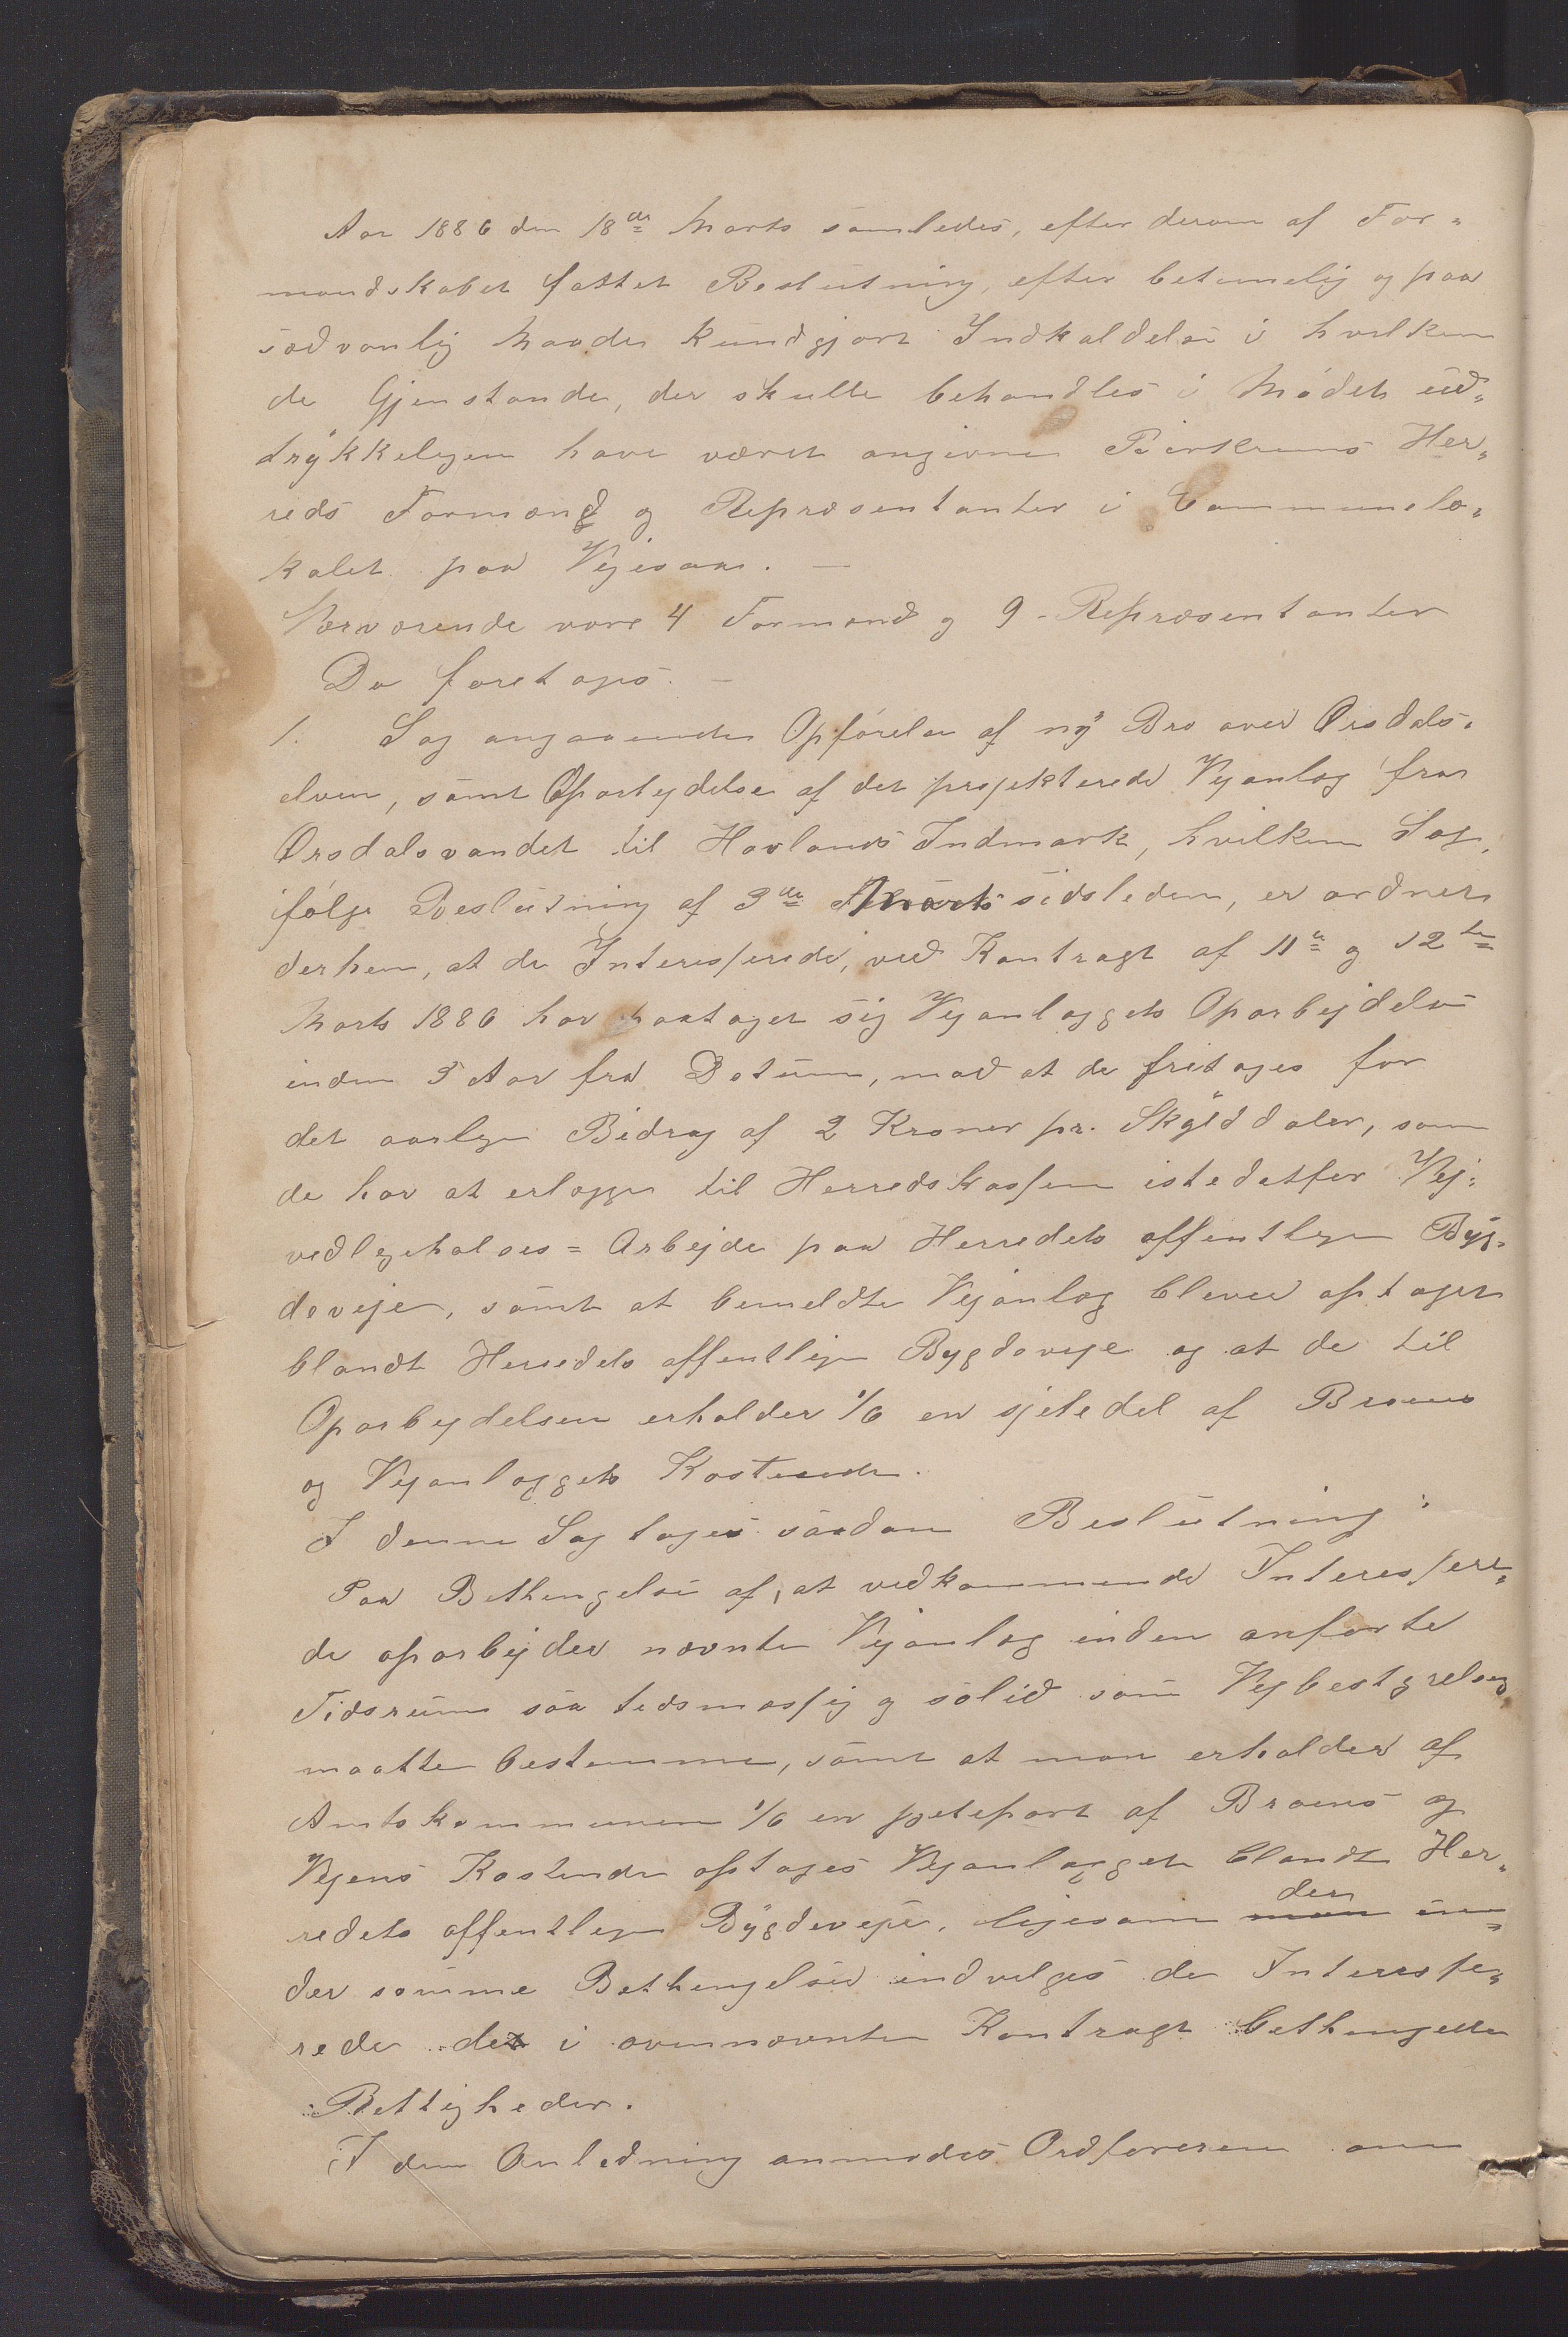 Aar 1886 den 18de Marts samledes, efter derom af For-
mandskabet fattet Beslutning, efter betimelig og paa
sædvanlig Maade kundgjort Indkaldelse i hvilken
de Gjenstande, der skulle behandles i Mødet ud-
trykkeligen have været angivne Birkrems Her-
reds Formænd og Repræsentanter i Communelo-
kalet paa Vejesaas. —
Nærværende vare 4 Formænd og 9 Repræsentanter
Da foretoges. —
1. Sag angaaende Opførelse af ny Bro over Ørsdals-
elven, samt Oparbejdelse af det projekterede Vejanlæg fra
Ørsdalsvandet til Hovlands Indmark, hvilken Sag,
ifølge Beslutning af 3de Marts sidsleden, er ordnet
derhen, at de Interesserede, ved Kontragt af 11te og 12te
Marts 1886 har paataget sig Vejanlæggets Oparbejdelse
inden 3 Aar fra Datum, mod at de fritages for
det aarlige Bidrag af 2 Kroner pr. Skylddaler, som
de har at erlægge til Herredskassen istedetfor Vej-
vedligeholdes = Arbejde paa Herredets offentlige Byg-
deveje, samt at bemeldte Vejanlæg bliver optaget
blandt Herredets offentlige Bygdeveje og at de til
Oparbejdelsen erholder 1/6 en sjetedel af Broens
og Vejanlæggets Kostende.
I denne Sag toges saadan Beslutning:
Paa Bethingelse af, at vedkommende Interessere-
de oparbejder nævnte Vejanlæg inden anførte
Tidsrum saa tidsmæssig og solid som Vejbestyrelsen
maatte bestemme, samt at man erholder af
Amtskommunen 1/6 en sjetepart af Broens og
Vejens Kostende optages Vejanlægget blandt Her-
redets offentlige Bygdeveje, ligesom der un-
der samme Bethingelse indvilges de Interesse-
rede de i ovennævnte Kontragt bethingede
Rettigheder.
I den Anledning anmodes Ordføreren om